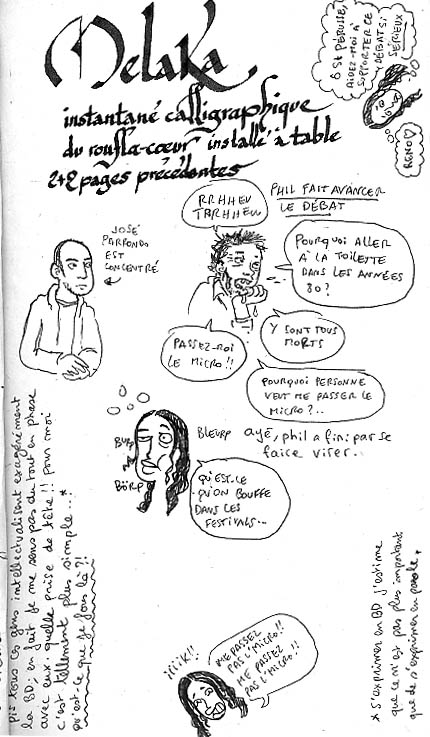 Melaka
instantané calligraphique
du roufla-cœur installé à table
2+2 pages précédentes
Ô ST PÉRUSSE,
AIDEZ-MOI À
SUPPORTER CE
DÉBAT SI
SÉRIEUX
RENO♡
RRHHEU
TRRHHEUU
PHIL FAIT AVANCER
LE DÉBAT
JOSÉ
PARRONDO
EST
CONCENTRÉ
POURQUOI ALLER
À LA TOILETTE
DANS LES ANNÉES
80?
PASSEZ-MOI
LE MICRO!!
Y SONT TOUS
MORTS
POURQUOI PERSONNE
VEUT ME PASSER LE
MICRO?..
BURP
BÖRP
BLEURP
ayé, phil a fini par se
faire virer..
QU'EST-CE
QU'ON BOUFFE
DANS LES
FESTIVALS...
pis tous ces gens intellectualisent exagérément
la BD; en fait je me sens pas du tout en phase
avec eux. quelle prise de tête!! pour moi
c'est tellement plus simple...*
qu'est-ce que je fous là?!
iiiik!!
ME PASSEZ
PAS L'MICRO!!
ME PASSEZ
PAS L'MICRO!!
* S'exprimer en BD j'estime
que ce n'est pas plus important
que de s'exprimer en parole.